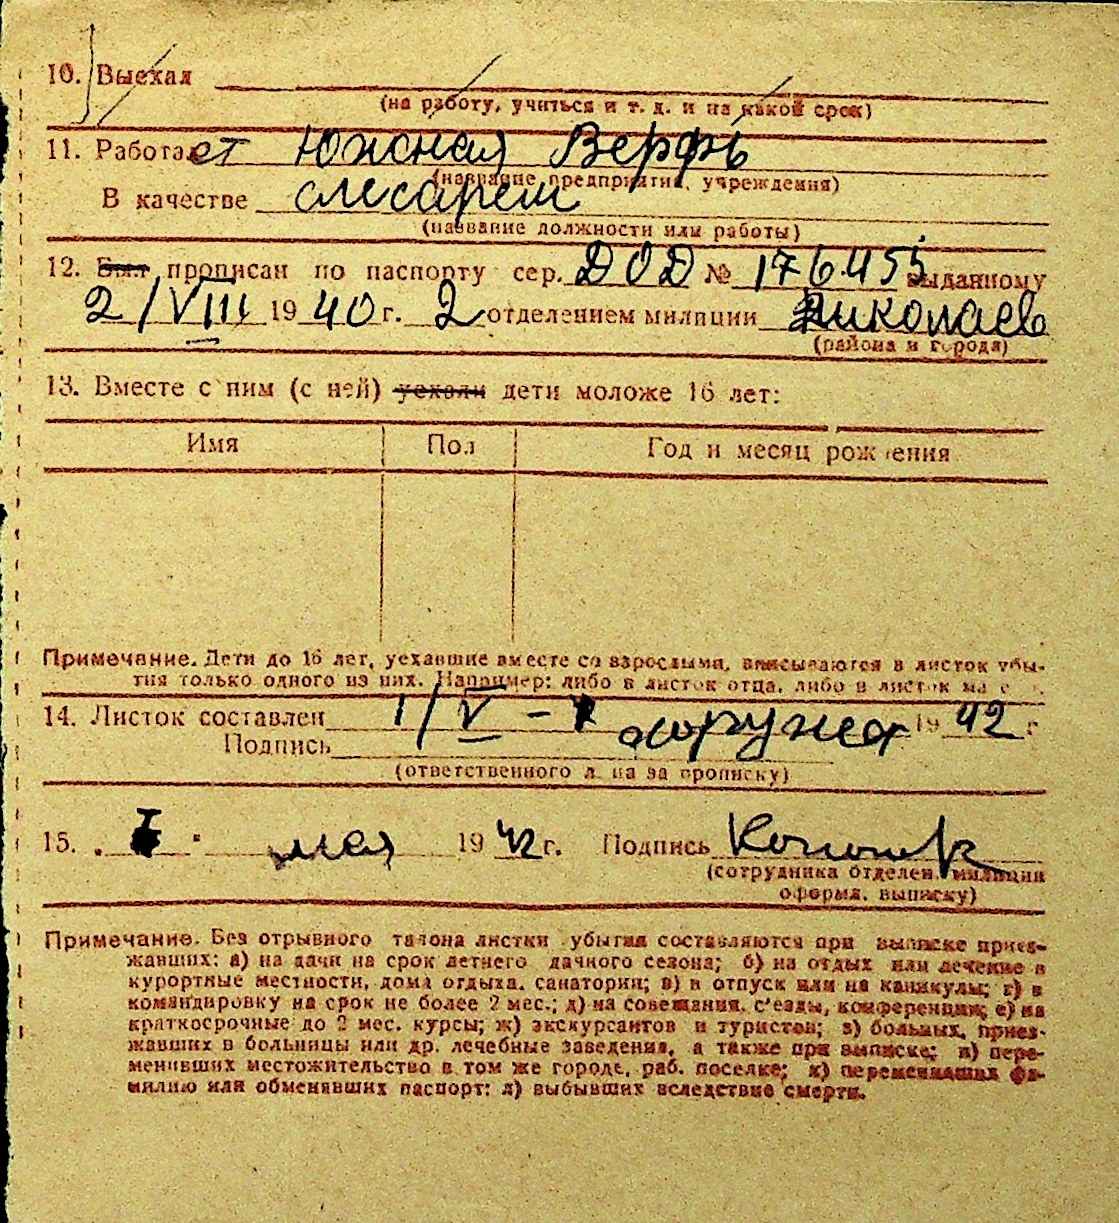 10. Выехал
(на работу, учиться и т. д. и на какой срок)
11. Работает Южная Верфь
(название предприятия, учреждения)
В качестве слесарем
(название должности или работы)
12. Был прописан по паспорту сер. ДОД № 176455 выданному
2/VIII 1940 г. 2 отделением милиции Николаев
(района и города)
13. Вместе с ним (с ней) уехали дети моложе 16 лет:
Имя Пол Год и месяц рождения
Примечание. Дети до 16 лет, уехавшие вместе со взрослыми, вписываются в листок убы-
тия только одного из них. Например: либо в листок отца, либо в листок
14. Листок составлен 1/V - 1942 г
Подпись
(ответственного лица за прописку)
15. мая 1942 г. Подпись
(сотрудника отделен. милиции
оформл. выписку)
Примечание. Без отрывного талона листки убытия составляются при выписке приез-
жавших: а) на дачи на срок летнего дачного сезона; б) на отдых или лечение в
курортные местности, дома отдыха, санатории; в) в отпуск или на каникулы; г) в
командировку на срок не более 2 мес.; д) на совещания, с'езды, конференции; е) на
краткосрочные до 2 мес. курсы; ж) экскурсантов и туристов; з) больных, приез-
жавших в больницы или др. лечебные заведения, а также при выписке; и) пере-
менивших местожительство в том же городе, раб. поселке; к) переменивших фа-
милию или обменявших паспорт; л) выбывших вследствие смерти.